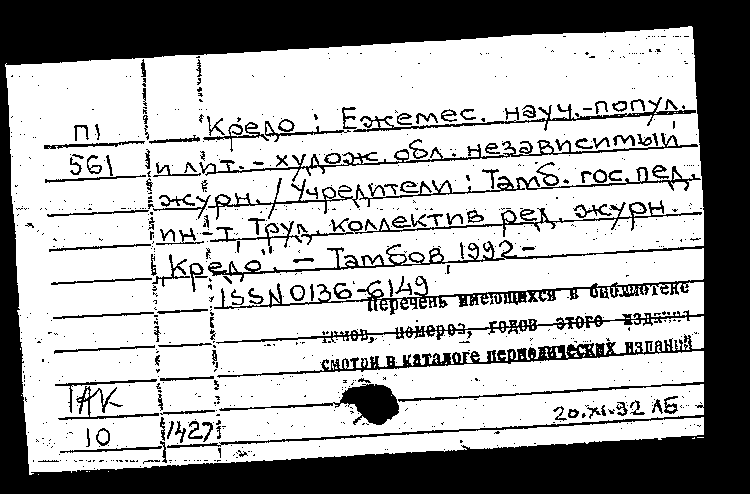 П1 Кредо : Ежемес. науч.-попул.
561 и лит.-худож. обл. независимый
журн. / Учредители : Тамб. гос. пед.
ин-т, Труд. коллектив ред. журн.
„Кредо". - Тамбов, 1992 -
ISSN 0136-6149
Перечень имеющихся в библиотеке
томов, номеров, годов этого издания
смотри в каталоге периодических изданий
1АК
20.XI.92 ЛБ
10 1427